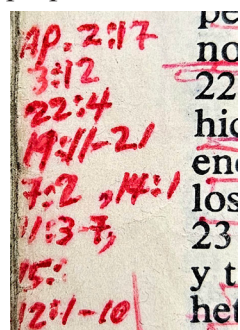 Ap. 2:17
3:12
22:4
19:11-21
7:2, 14:1
11:3-7,
15:
12:1-10
no
22
hic
enc
los
23
y t
het